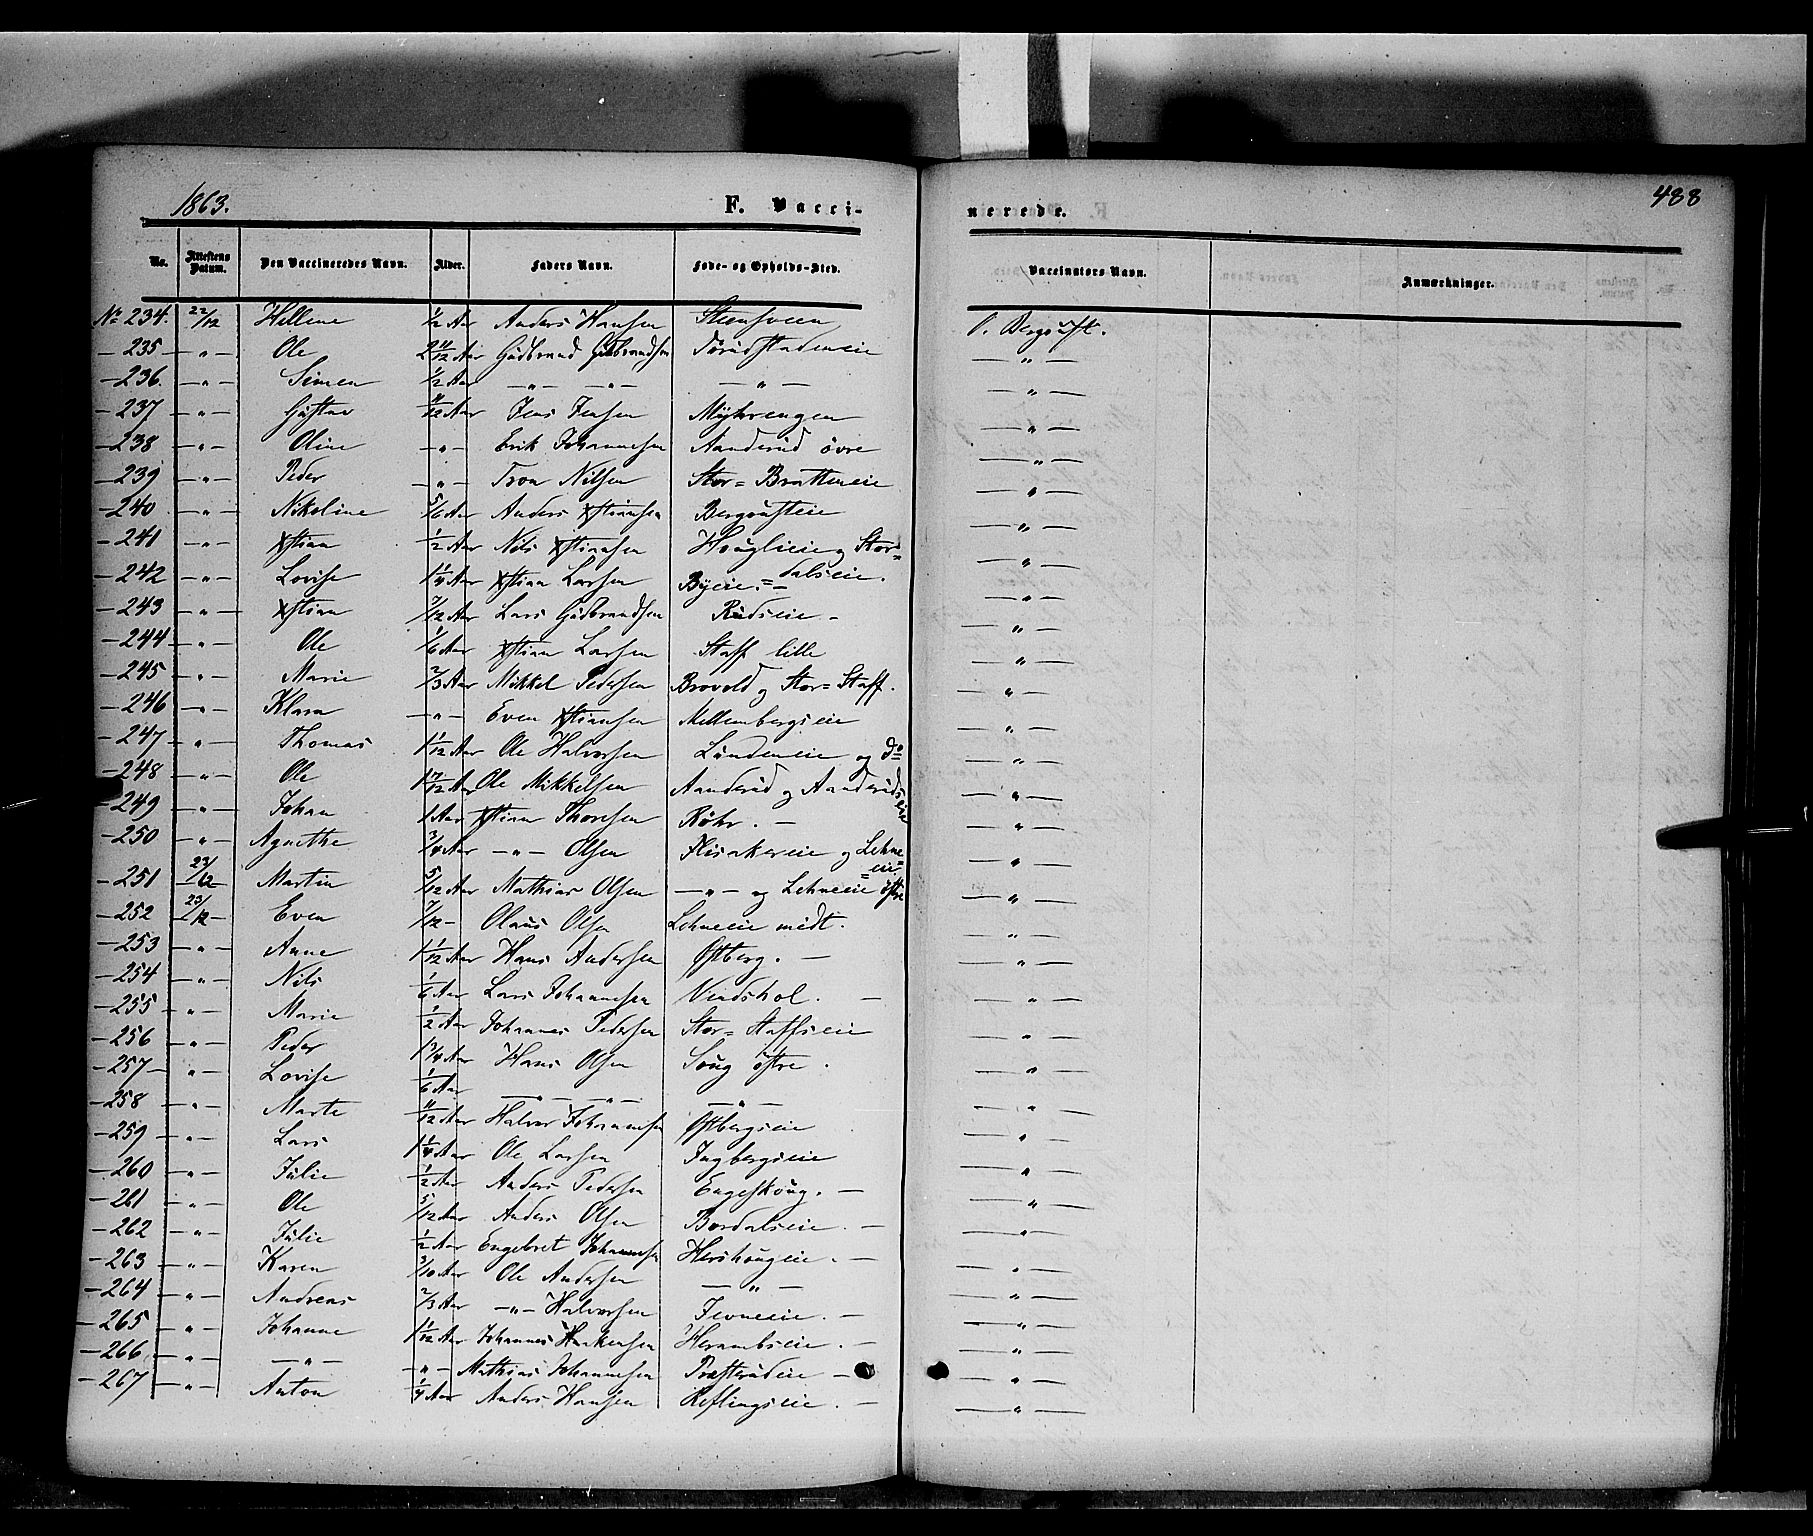 1863. F. Vacci- nerede. 488
No. Attestens Datum. Den Vaccineredes Navn. Alder. Faders Navn. Føde- og Opholds-Sted. Vaccinators Navn. Anmærkninger.
No 234. 22/12 Hellene 1/2 Aar Anders Hansen Steensveen O. Bergsust.
- 235 -„- Ole 2 11/12 Aar Gudbrand Gudbrandsen -„-
- 236. -„- Simen 1/2 Aar -„- -„- -„- -„-
- 237 -„- Gustav 11/12 Aar Jens Jensen Myhrengen -„-
- 238 -„- Oline -„- Erik Johannesen Aanderud övre -„-
- 239 -„- Peder -„- Tron Nilsen Stor= Bratteneie -„-
- 240 -„- Nikoline 5/6 Aar Anders Xstiansen Bergsusteie -„-
- 241 -„- Xstian 1/2 Aar Nils Xstiansen Houglieie og Stor= -„-
- 242 -„- Lovise 1 1/4 Aar Xstian Larsen Byeie. =dalseie. -„-
- 243 -„- Xstian 7/12 Aar Lars Gudbrandsen Rudseie - -„-
- 244 -„- Ole 1/6 Aar Xstian Larsen Staff lille -„-
- 245 -„- Marie 2/3 Aar Mikkel Pedersen Brovold og Stor= Staff. -„-
- 246 -„- Klara -„- Even Xstiansen Mellembergseie -„-
- 247 -„- Thomas 1 1/12 Aar Ole Halvorsen Lundeneie og Do -„-
- 248 -„- Ole 1 7/12 Aar Ole Mikkelsen Aanderud og Aanderuds eie -„-
- 249 -„- Johan 1 Aar Xstian Thoresen Röhr. - -„-
- 250 -„- Agnethe 3/4 Aar -„- Olsen Flisakereie og Lehne= =eie -„-
- 251 23/12 Martin 5/12 Aar Mathias Olsen -„- og Lehneeie östre -„-
- 252 23/12 Even 7/12 - Olaus Olsen Lehneeie midt. -„-
- 253 -„- Anne 1 1/12 Aar Hans Andersen Østberg. - -„-
- 254 -„- Nils 1/6 Aar Lars Johannesen Vindshol. - -„-
- 255 -„- Marie 1/2 Aar Johannes Pedersen Stor= Staffseie -„-
- 256 -„- Peder 1 3/4 Aar Hans Olsen Soug östre. -„-
- 257 -„- Lovise 1/6 Aar -„- -„- -„- -„-
- 258 -„- Marte 11/12 Aar Halvor Johannesen Østbergseie -„-
- 259 -„- Lars 1 1/4 Aar Ole Larsen Ingbergseie -„-
- 260 -„- Julie 1/2 Aar Anders Pedersen Engeskoug. - -„-
- 261 -„- Ole 5/12 Aar Anders Olsen Bordalseie. - -„-
- 262 -„- Julie 1/2 Aar Engebret Johannesen Hershougeie. - -„-
- 263 -„- Karen 3/10 Aar Ole Andersen -„- -„-
- 264 -„- Andreas 2/3 Aar -„- Halvorsen Jevneeie. - -„-
- 265 -„- Johanne 1 1/12 Aar Johannes Haakensen Herambseie. - -„-
- 266 -„- -„- -„- Mathias Johannesen Præsterudeie - -„-
- 267 -„- Anton 1/4 Aar Anders Hansen Keflingseie. - -„-